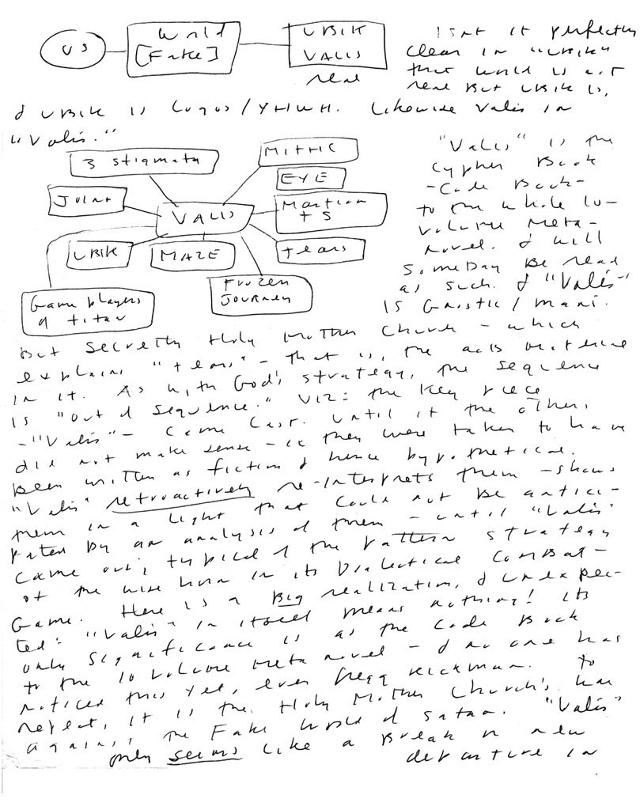 US
World
[Fake]
UBIK
VALIS
real
Isnt it perfectly
clear in "UBIK"
that world is not
real But UBIK is,
& UBIK is Logos/YHWH. Likewise Valis in
"Valis."
3 stigmata
MITHC
EYE
Joint
VALIS
Martian
TS
UBIK
MAZE
tears
Game players
of titan
Frozen
Journey
"Valis" is the
cypher Book
-Code Book-
to the whole 10-
volume Meta-
novel. & will
someday be read
as such. & "Valis"
is Gnostic/Mani.
But secretly Holy Mother Church - which
explains "tears" - that is, the acts material
in it. As with God's strategy, the sequence
is "out of sequence." Viz: the key piece
- "Valis" - came last. Until it the others
did not make sense - ie they were taken to have
been written as fiction & hence hypothetical.
"Valis" retroactively re-interprets them - shows
them in a light that could not be antici-
pated by an analysis of them - until "Valis"
came out; typical of the pattern strategy
of the wise horn in its Dialectical Combat-
Game. Here is a Big realization, & unexpec-
ted: "Valis" in itself means nothing! Its
only significance is as the code Book
to the 10 volume meta novel - & no one has
noticed this yet, even Gregg Rickman. To
repeat, it is the Holy Mother Church's
against the Fake world of Satan. "Valis"
only seems like a Break or new
departure in